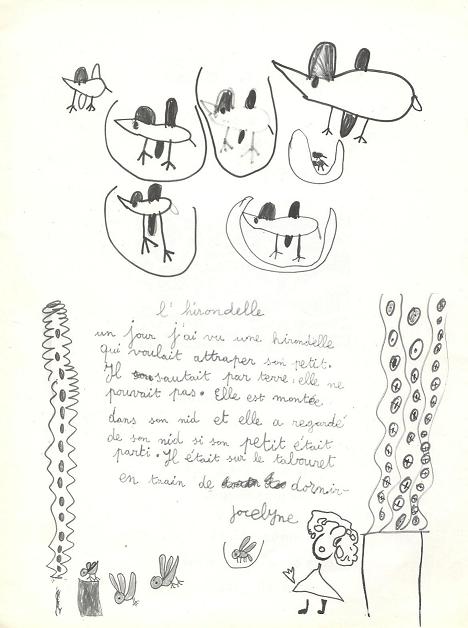 l'hirondelle
un jour j'ai vu une hirondelle
qui voulait attraper son petit.
Il sautait par terre. elle ne
pouvait pas. Elle est montée
dans son nid et elle a regardé
de son nid si son petit était
parti. Il était sur le tabouret
en train de dormir-
jocelyne